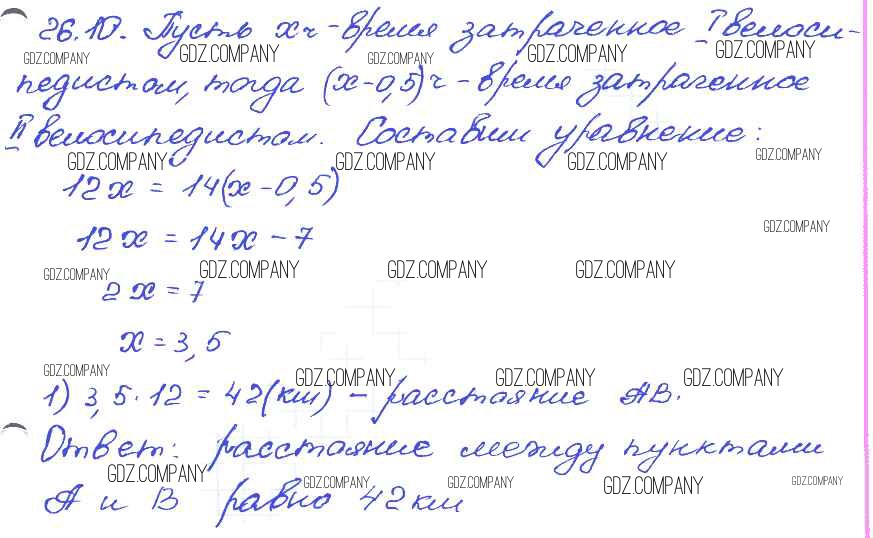 26.10. Пусть x ч - время затраченное I велоси-
GDZ.COMPANY GDZ.COMPANY GDZ.COMPANY GDZ.COMPANY GDZ.COMPANY
педистом, тогда (x-0,5)ч - время затраченное
II велосипедистом. Составим уравнение:
GDZ.COMPANY GDZ.COMPANY GDZ.COMPANY GDZ.COMPANY
12x = 14(x-0,5)
GDZ.COMPANY
12x = 14x - 7
GDZ.COMPANY GDZ.COMPANY GDZ.COMPANY GDZ.COMPANY
2x = 7
x = 3,5
GDZ.COMPANY GDZ.COMPANY GDZ.COMPANY GDZ.COMPANY
1) 3,5 · 12 = 42(км) - расстояние AB.
Ответ: расстояние между пунктами
GDZ.COMPANY GDZ.COMPANY GDZ.COMPANY GDZ.COMPANY GDZ.COMPANY
A и B равно 42 км